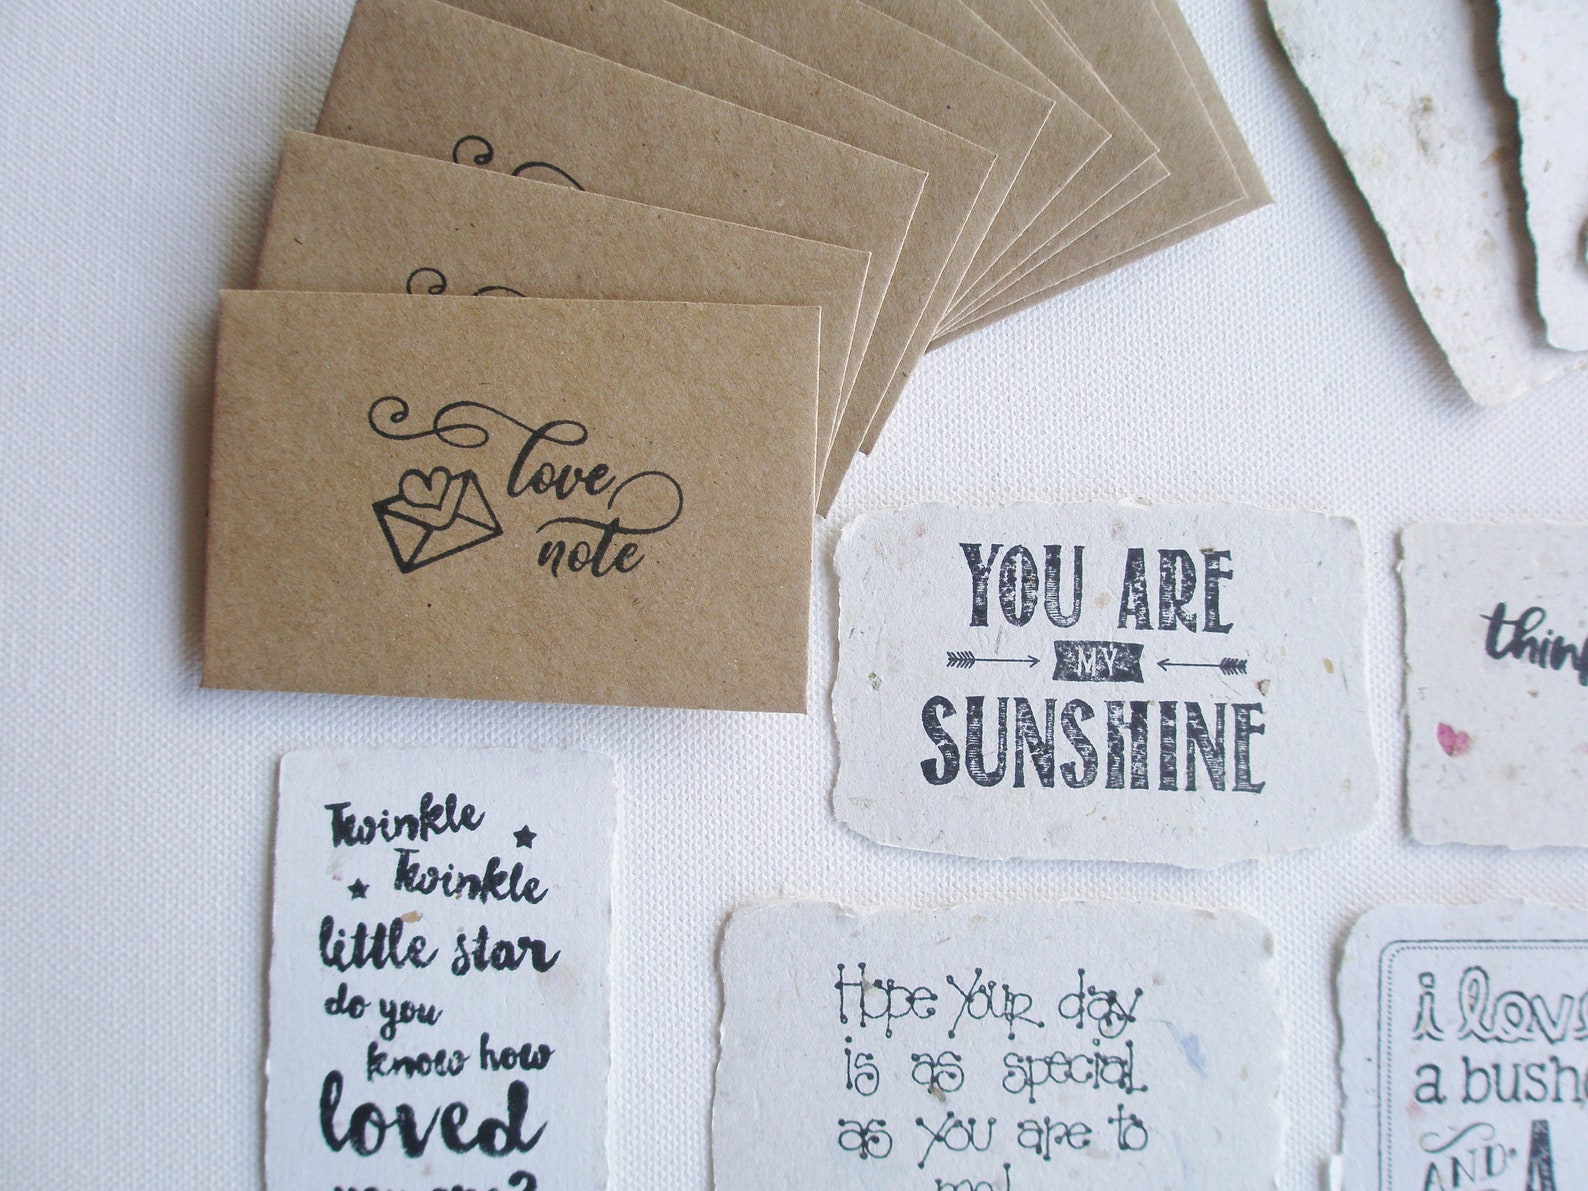 love
note
YOU ARE
MY
SUNSHINE
Twinkle
Twinkle
little star
do you
know how
loved
you are?
Hope your day
is as special
as you are to
me!
i love
a bush
AND